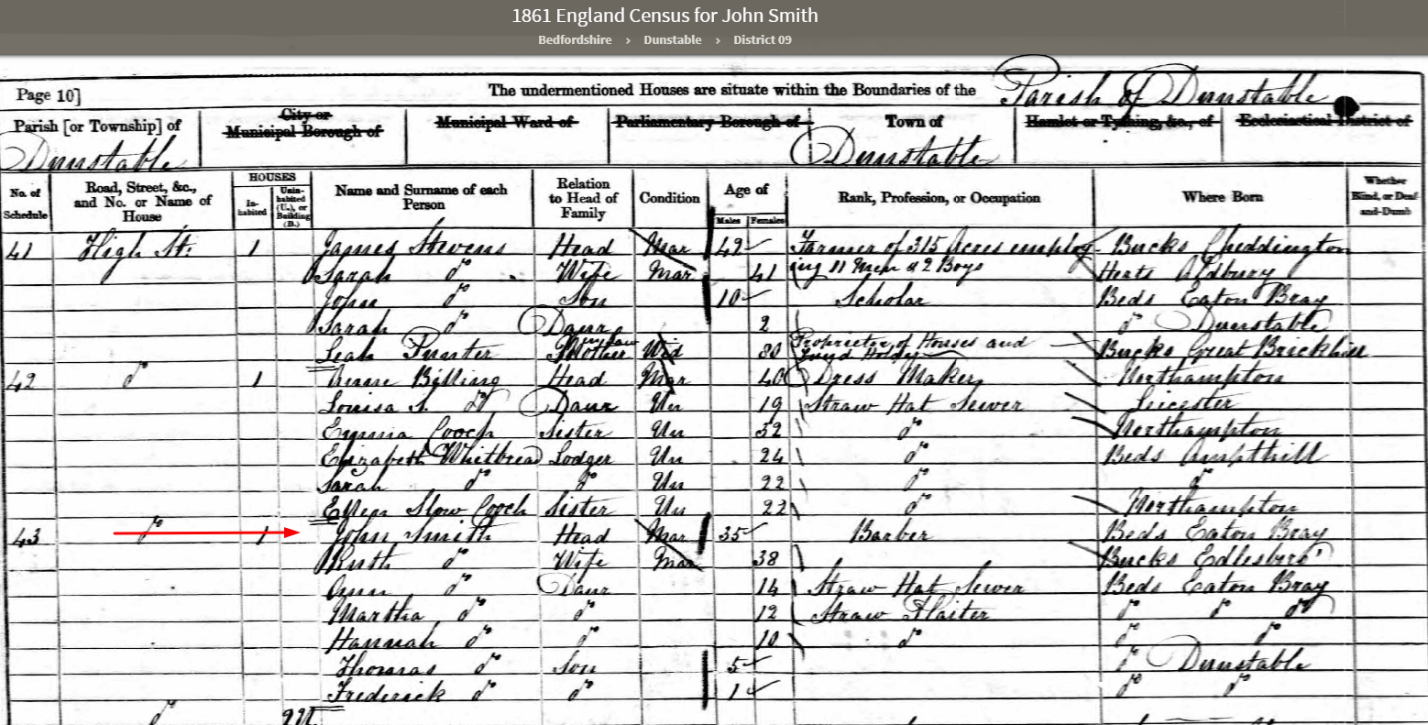 1861 England Census for John Smith
Bedfordshire › Dunstable › District 09
Page 10] The undermentioned Houses are situate within the Boundaries of the Parish of Dunstable
Parish [or Township] of City or Municipal Borough of Municipal Ward of Parliamentary Borough of Town of Hamlet or Tything, &c., of Ecclesiastical District of
Dunstable Dunstable
No. of Schedule Road, Street, &c., and No. or Name of House HOUSES In-habited Unin-habited (U.), or Building (B.) Name and Surname of each Person Relation to Head of Family Condition Age of Males Females Rank, Profession, or Occupation Where Born Whether Blind, or Deaf-and-Dumb
41 High St. 1 James Stevens Head Mar 42 Farmer of 315 Acres employ- Bucks Cheddington
Sarah do Wife Mar 41 ing 11 Men & 2 Boys Herts Aldbury
John do Son 10 Scholar Beds Eaton Bray
Sarah do Daur 2 do Dunstable
Leah Mother in law Wid 80 Proprietor of Houses and Bucks Great Brickhill
42 do 1 Billing Head Mar 40 Dress Maker Northampton
Louisa S. do Daur Un 19 Straw Hat Sewer Leicester
Emma Cooch Sister Un 32 do Northampton
Elizabeth Whitbread Lodger Un 24 do Beds Ampthill
Sarah do do Un 22 do do
Ellen Slow Cooch Sister Un 22 do Northampton
43 do 1 John Smith Head Mar 35 Barber Beds Eaton Bray
Ruth do Wife Mar 38 Bucks Edlesbro'
Ann do Daur 14 Straw Hat Sewer Beds Eaton Bray
Martha do do 12 Straw Plaiter do do do
Hannah do do 10 do do do
Thomas do Son 5 do Dunstable
Frederick do do 1 do do
do